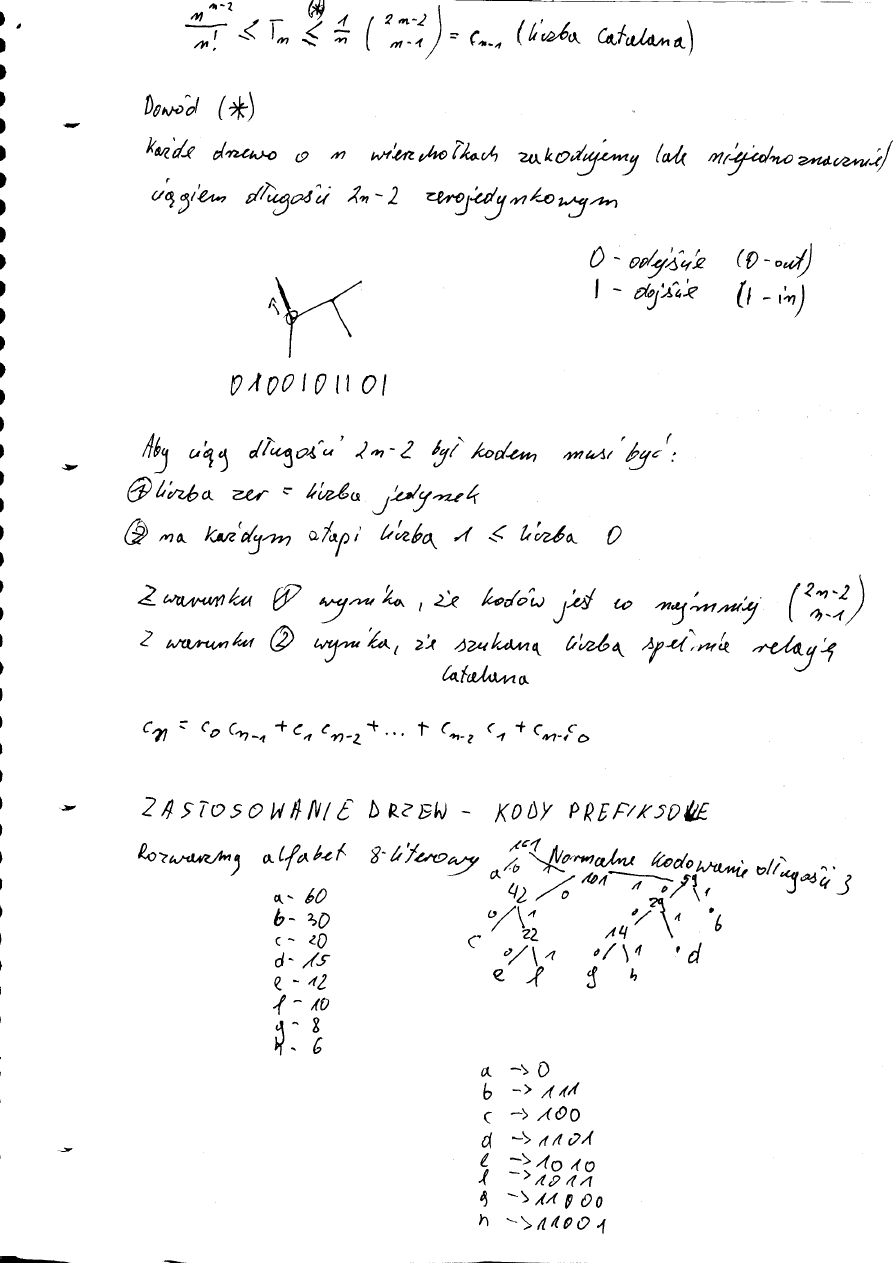 n^{n-2}/n! ≤ T_n ≤^{(*)} 1/n (2n-2 n-1) = c_{n-1} (liczba Catalana)
Dowód (*)
Każde drzewo o n wierzchołkach zakodujemy (ale niejednoznacznie)
ciągiem długości 2n-2 zerojedynkowym
0 - odejście (0-out)
1 - dojście (1-in)
0100101101
Aby ciąg długości 2n-2 był kodem musi być:
① liczba zer = liczba jedynek
② na każdym etapi liczba 1 ≤ liczba 0
Z warunku ① wynika, że kodów jest co najmniej (2n-2 n-1)
Z warunku ② wynika, że szukana liczba spełnia relację
Catalana
c_n = c_0 c_{n-1} + c_1 c_{n-2} + ... + c_{n-2} c_1 + c_{n-1} c_0
ZASTOSOWANIE DRZEW - KODY PREFIKSOWE
Rozważmy alfabet 8-literowy Normalne kodowanie długości 3
161
a 0 101
42 0 1 59
0 1 0 29 1
c 22 14 1 b
0 1 0 1 d
e f g h
a - 60
b - 30
c - 20
d - 15
e - 12
f - 10
g - 8
h - 6
a -> 0
b -> 111
c -> 100
d -> 1101
e -> 1010
f -> 1011
g -> 11000
h -> 11001